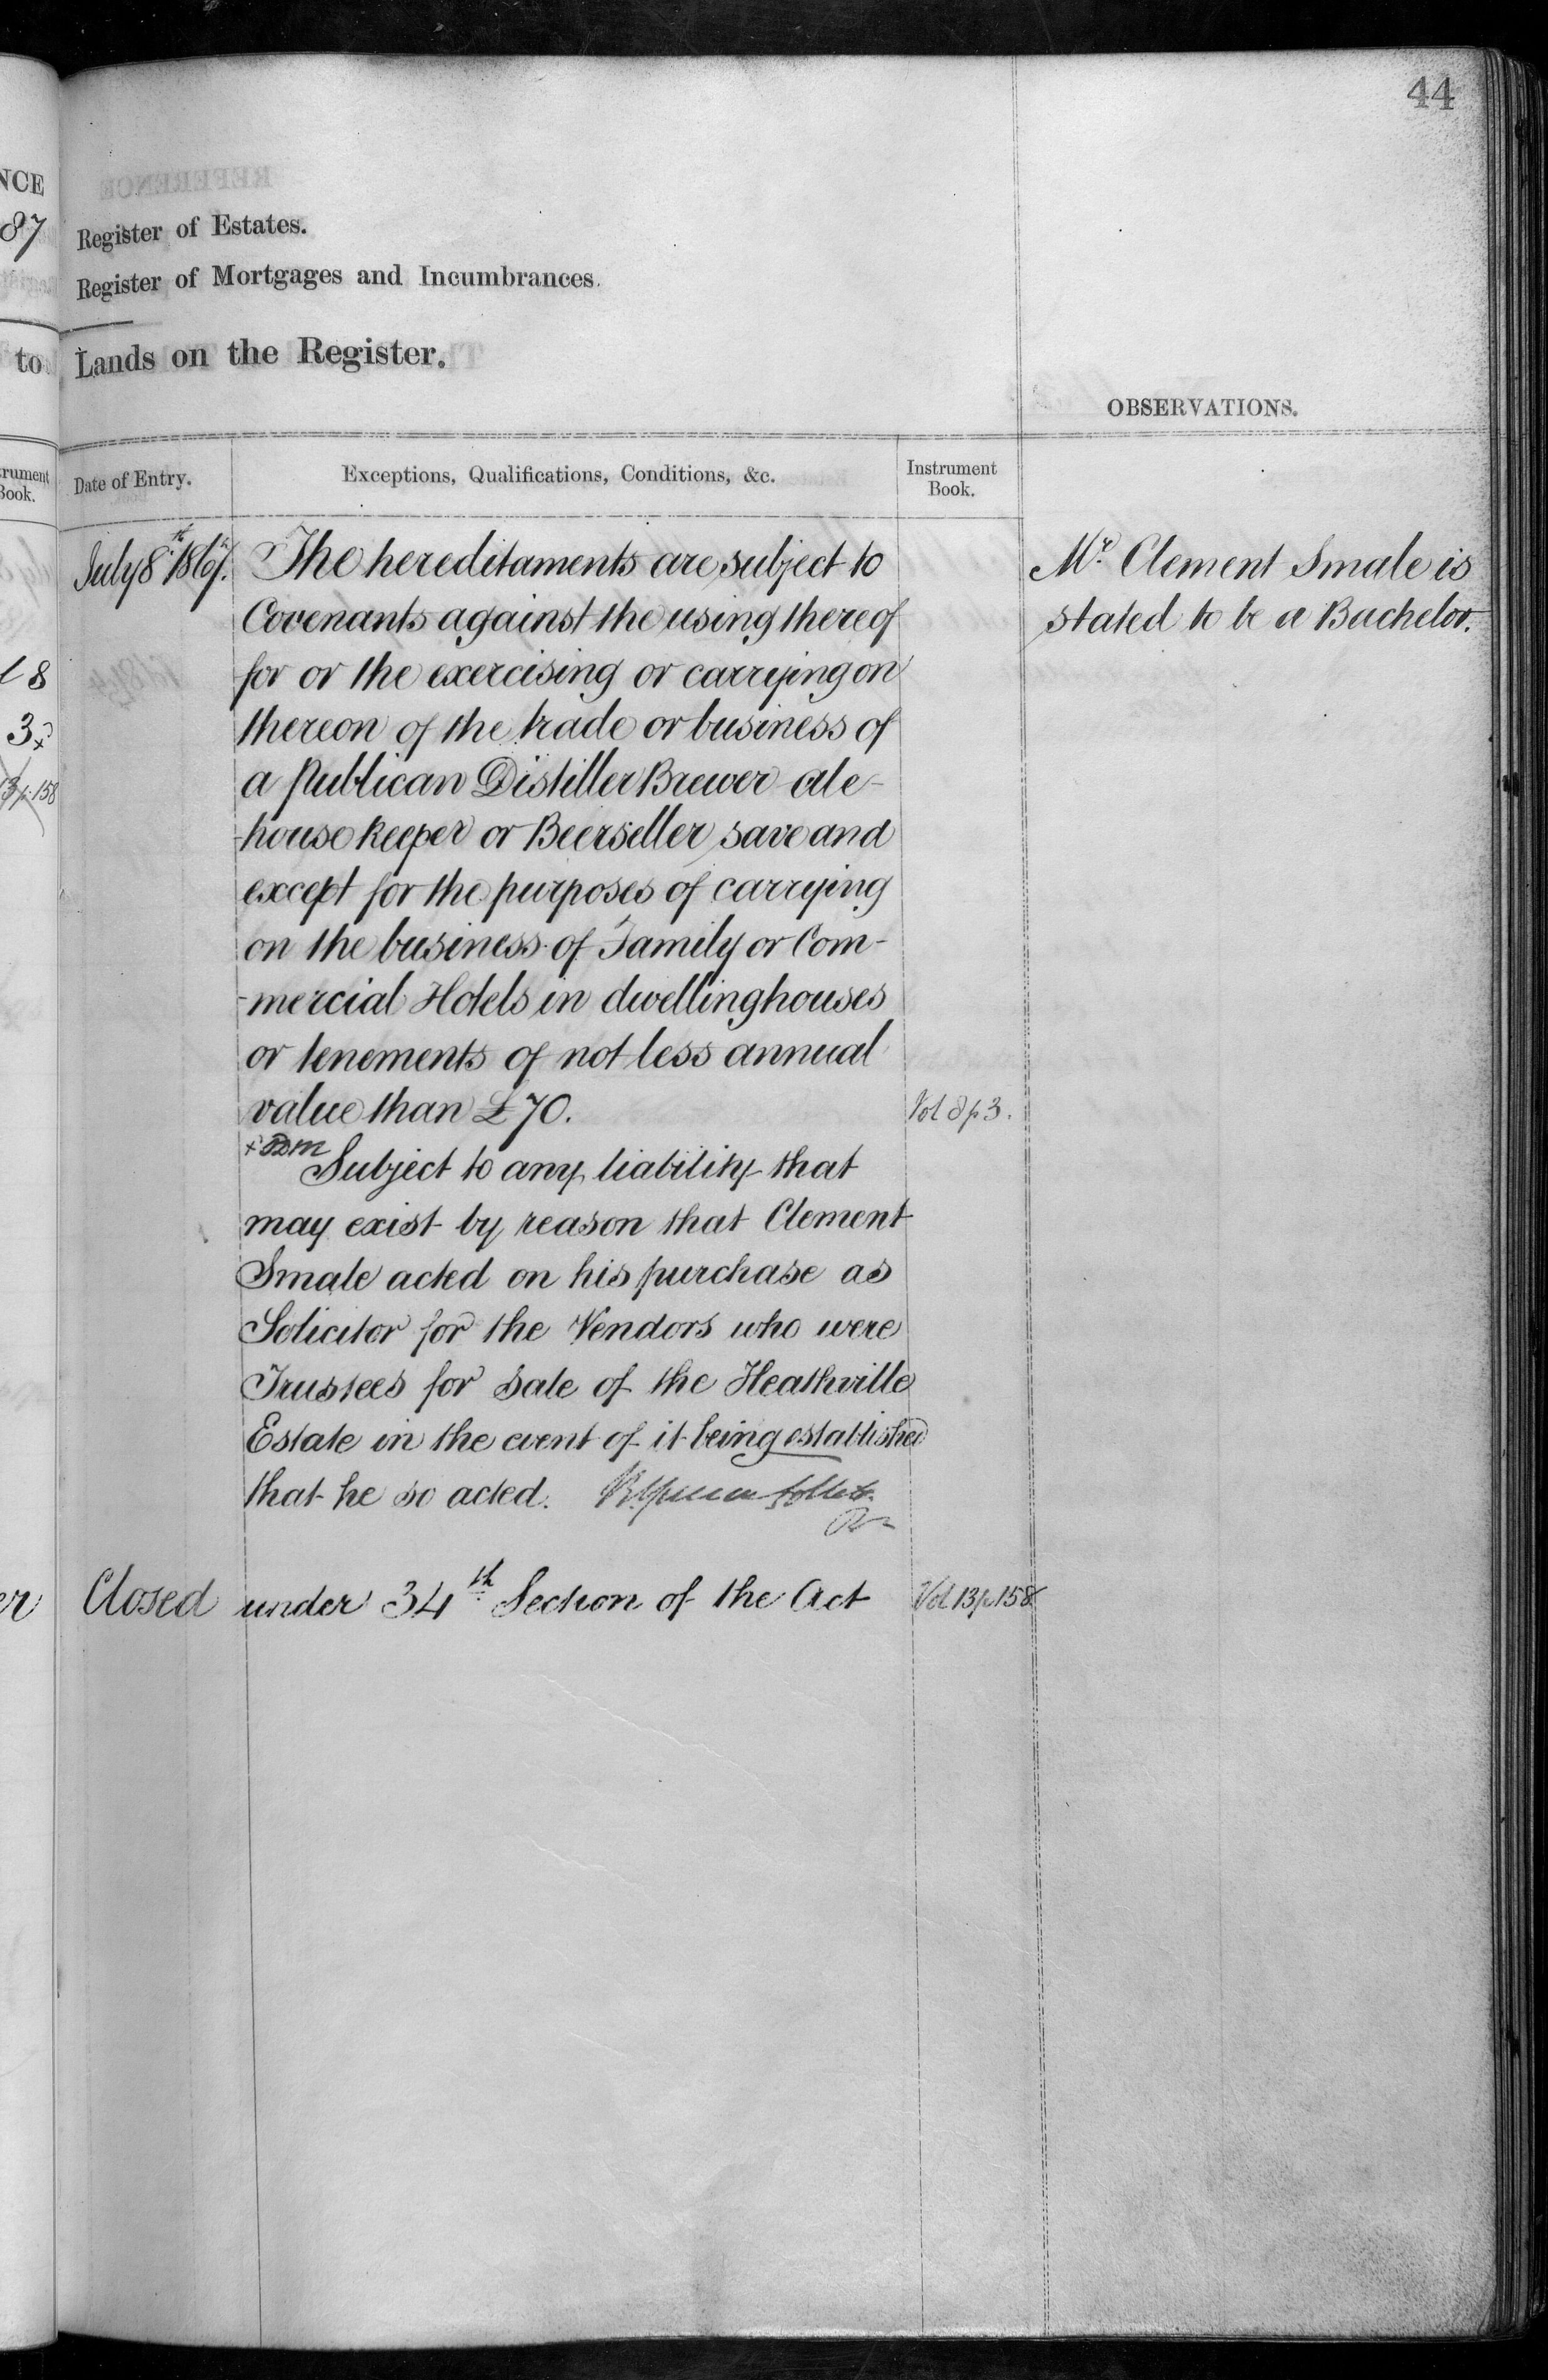 44
NCE
87
Register of Estates.
Register of Mortgages and Incumbrances.
to
Lands on the Register.
OBSERVATIONS.
trument
Book.
Date of Entry.
Exceptions, Qualifications, Conditions, &c.
Instrument
Book.
July 8th 1867.
The hereditaments are subject to
Covenants against the using thereof
for or the exercising or carrying on
thereon of the trade or business of
a Publican Distiller Brewer ale-
-house keeper or Beerseller save and
except for the purposes of carrying
on the business of Family or Com-
-mercial Hotels in dwellinghouses
or tenements of not less annual
value than £70.
Vol 8 p 3.
Mr. Clement Smale is
stated to be a Bachelor.
l 8
3
13 p 158
Subject to any liability that
may exist by reason that Clement
Smale acted on his purchase as
Solicitor for the Vendors who were
Trustees for Sale of the Heathville
Estate in the event of it being established
that he so acted.
er
Closed under 34th Section of the Act
Vol 13 p 158